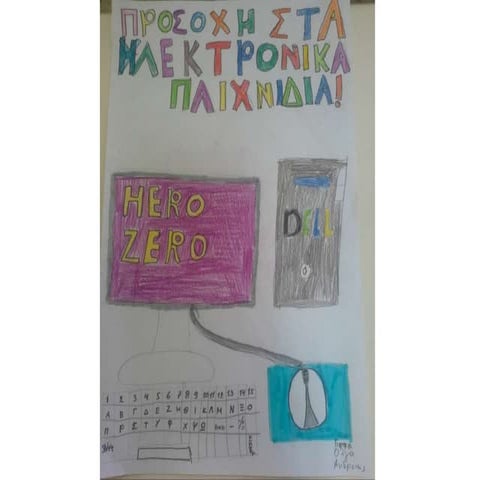 ΠΡΟΣΟΧΗ ΣΤΑ
ΗΛΕΚΤΡΟΝΙΚΑ
ΠΑΙΧΝΙΔΙΑ!
HERO
ZERO
DELL
1 2 3 4 5 6 7 8 9 10 11 12 13 14 15
Α Β Γ Δ Ε Ζ Η Θ Ι Κ Λ Μ Ν Ξ Ο
Π Ρ Σ Τ Υ Φ Χ Ψ Ω
Όλγα
Ανδρέας